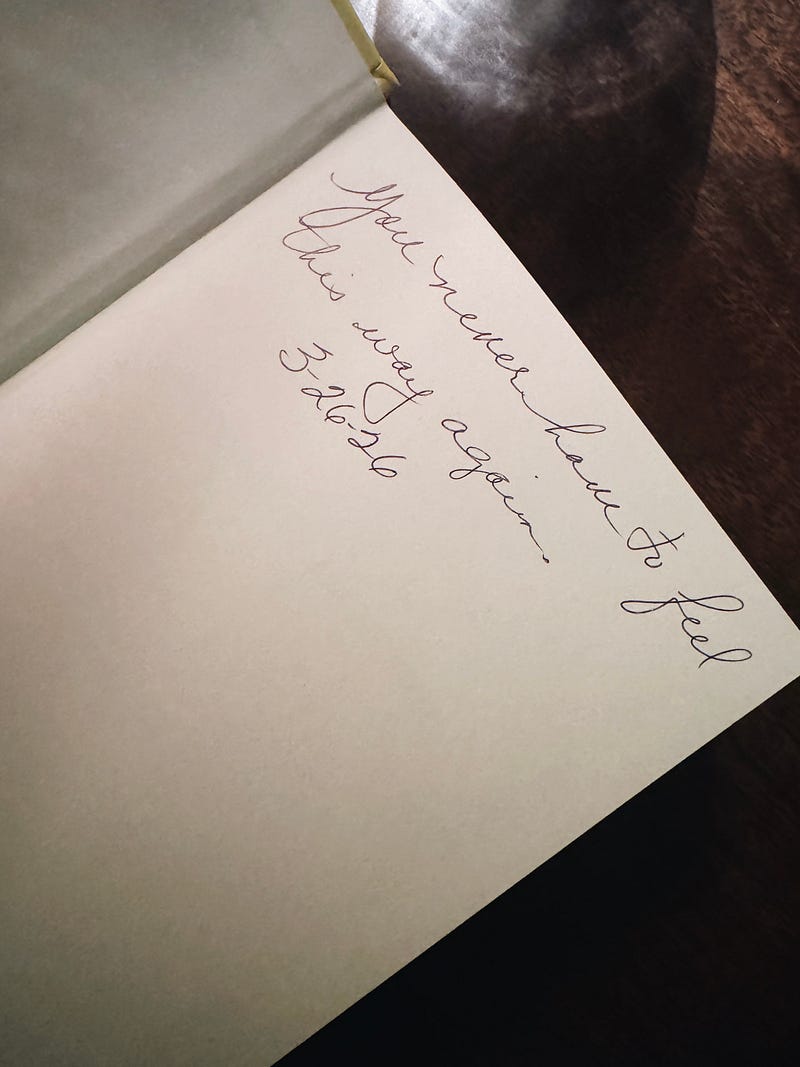 You never have to feel
this way again.
3-26-26